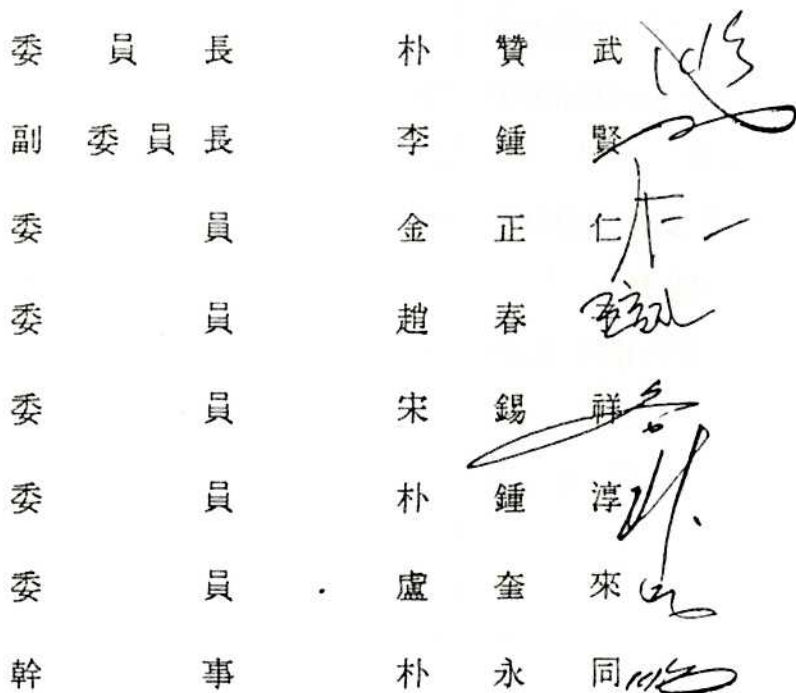 委員長 朴贊武
副委員長 李鍾賢
委員 金正仁
委員 趙春
委員 宋錫祥
委員 朴鍾淳
委員 盧奎來
幹事 朴永同